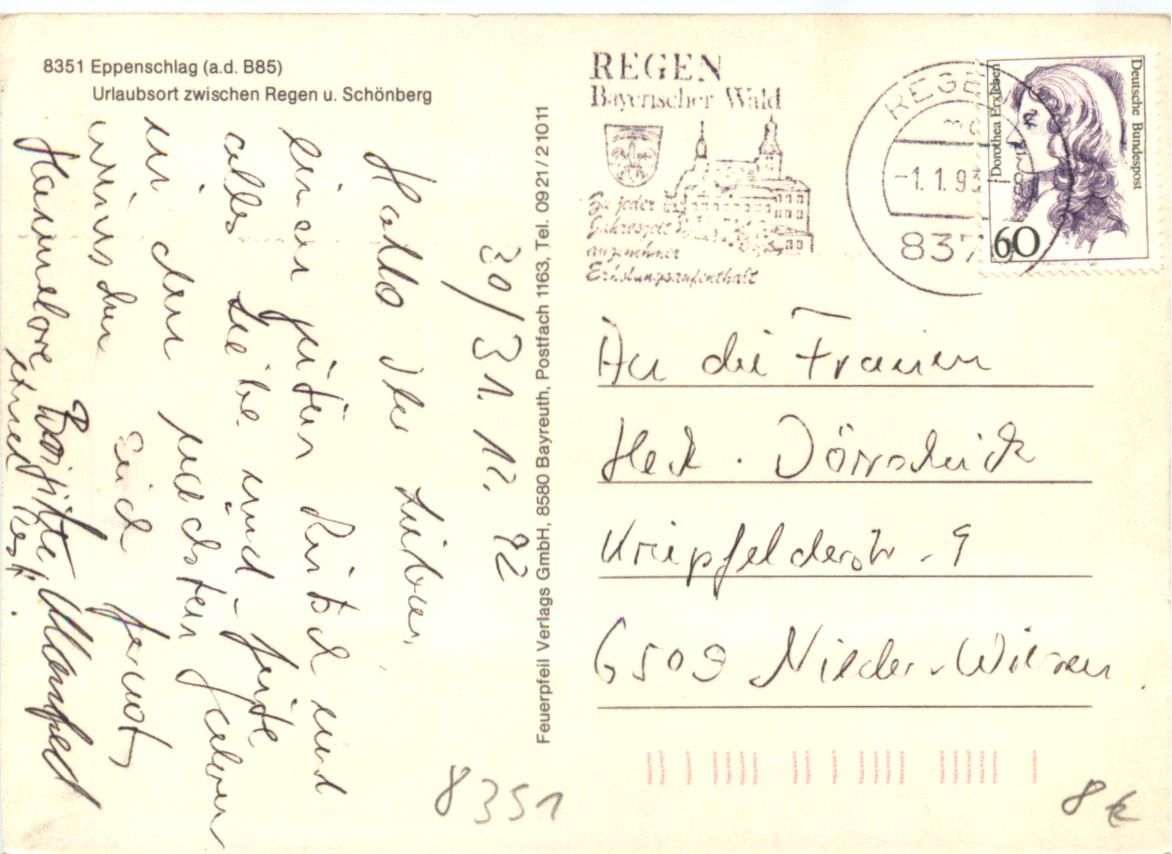 8351 Eppenschlag (a.d. B85)
Urlaubsort zwischen Regen u. Schönberg
30/31.12.92
Hallo Ihr Lieben,
einen guten Rutsch und
alles Liebe und - gute
in den nächsten Jahren
wünschen Euch
Hannelore Brigitte Manfred
Feuerpfeil Verlags GmbH, 8580 Bayreuth, Postfach 1163, Tel. 0921/21011
REGEN
Bayerischer Wald
Zu jeder
Jahreszeit
angenehmer
Erholungsaufenthalt
REGE
-1.1.93
837
Deutsche Bundespost
Dorothea Erxleben
60
An die Frauen
Heck - Dörrschuck
Kriepfelderstr - 9
6509 Nieder-Wiesen
8351
8 €